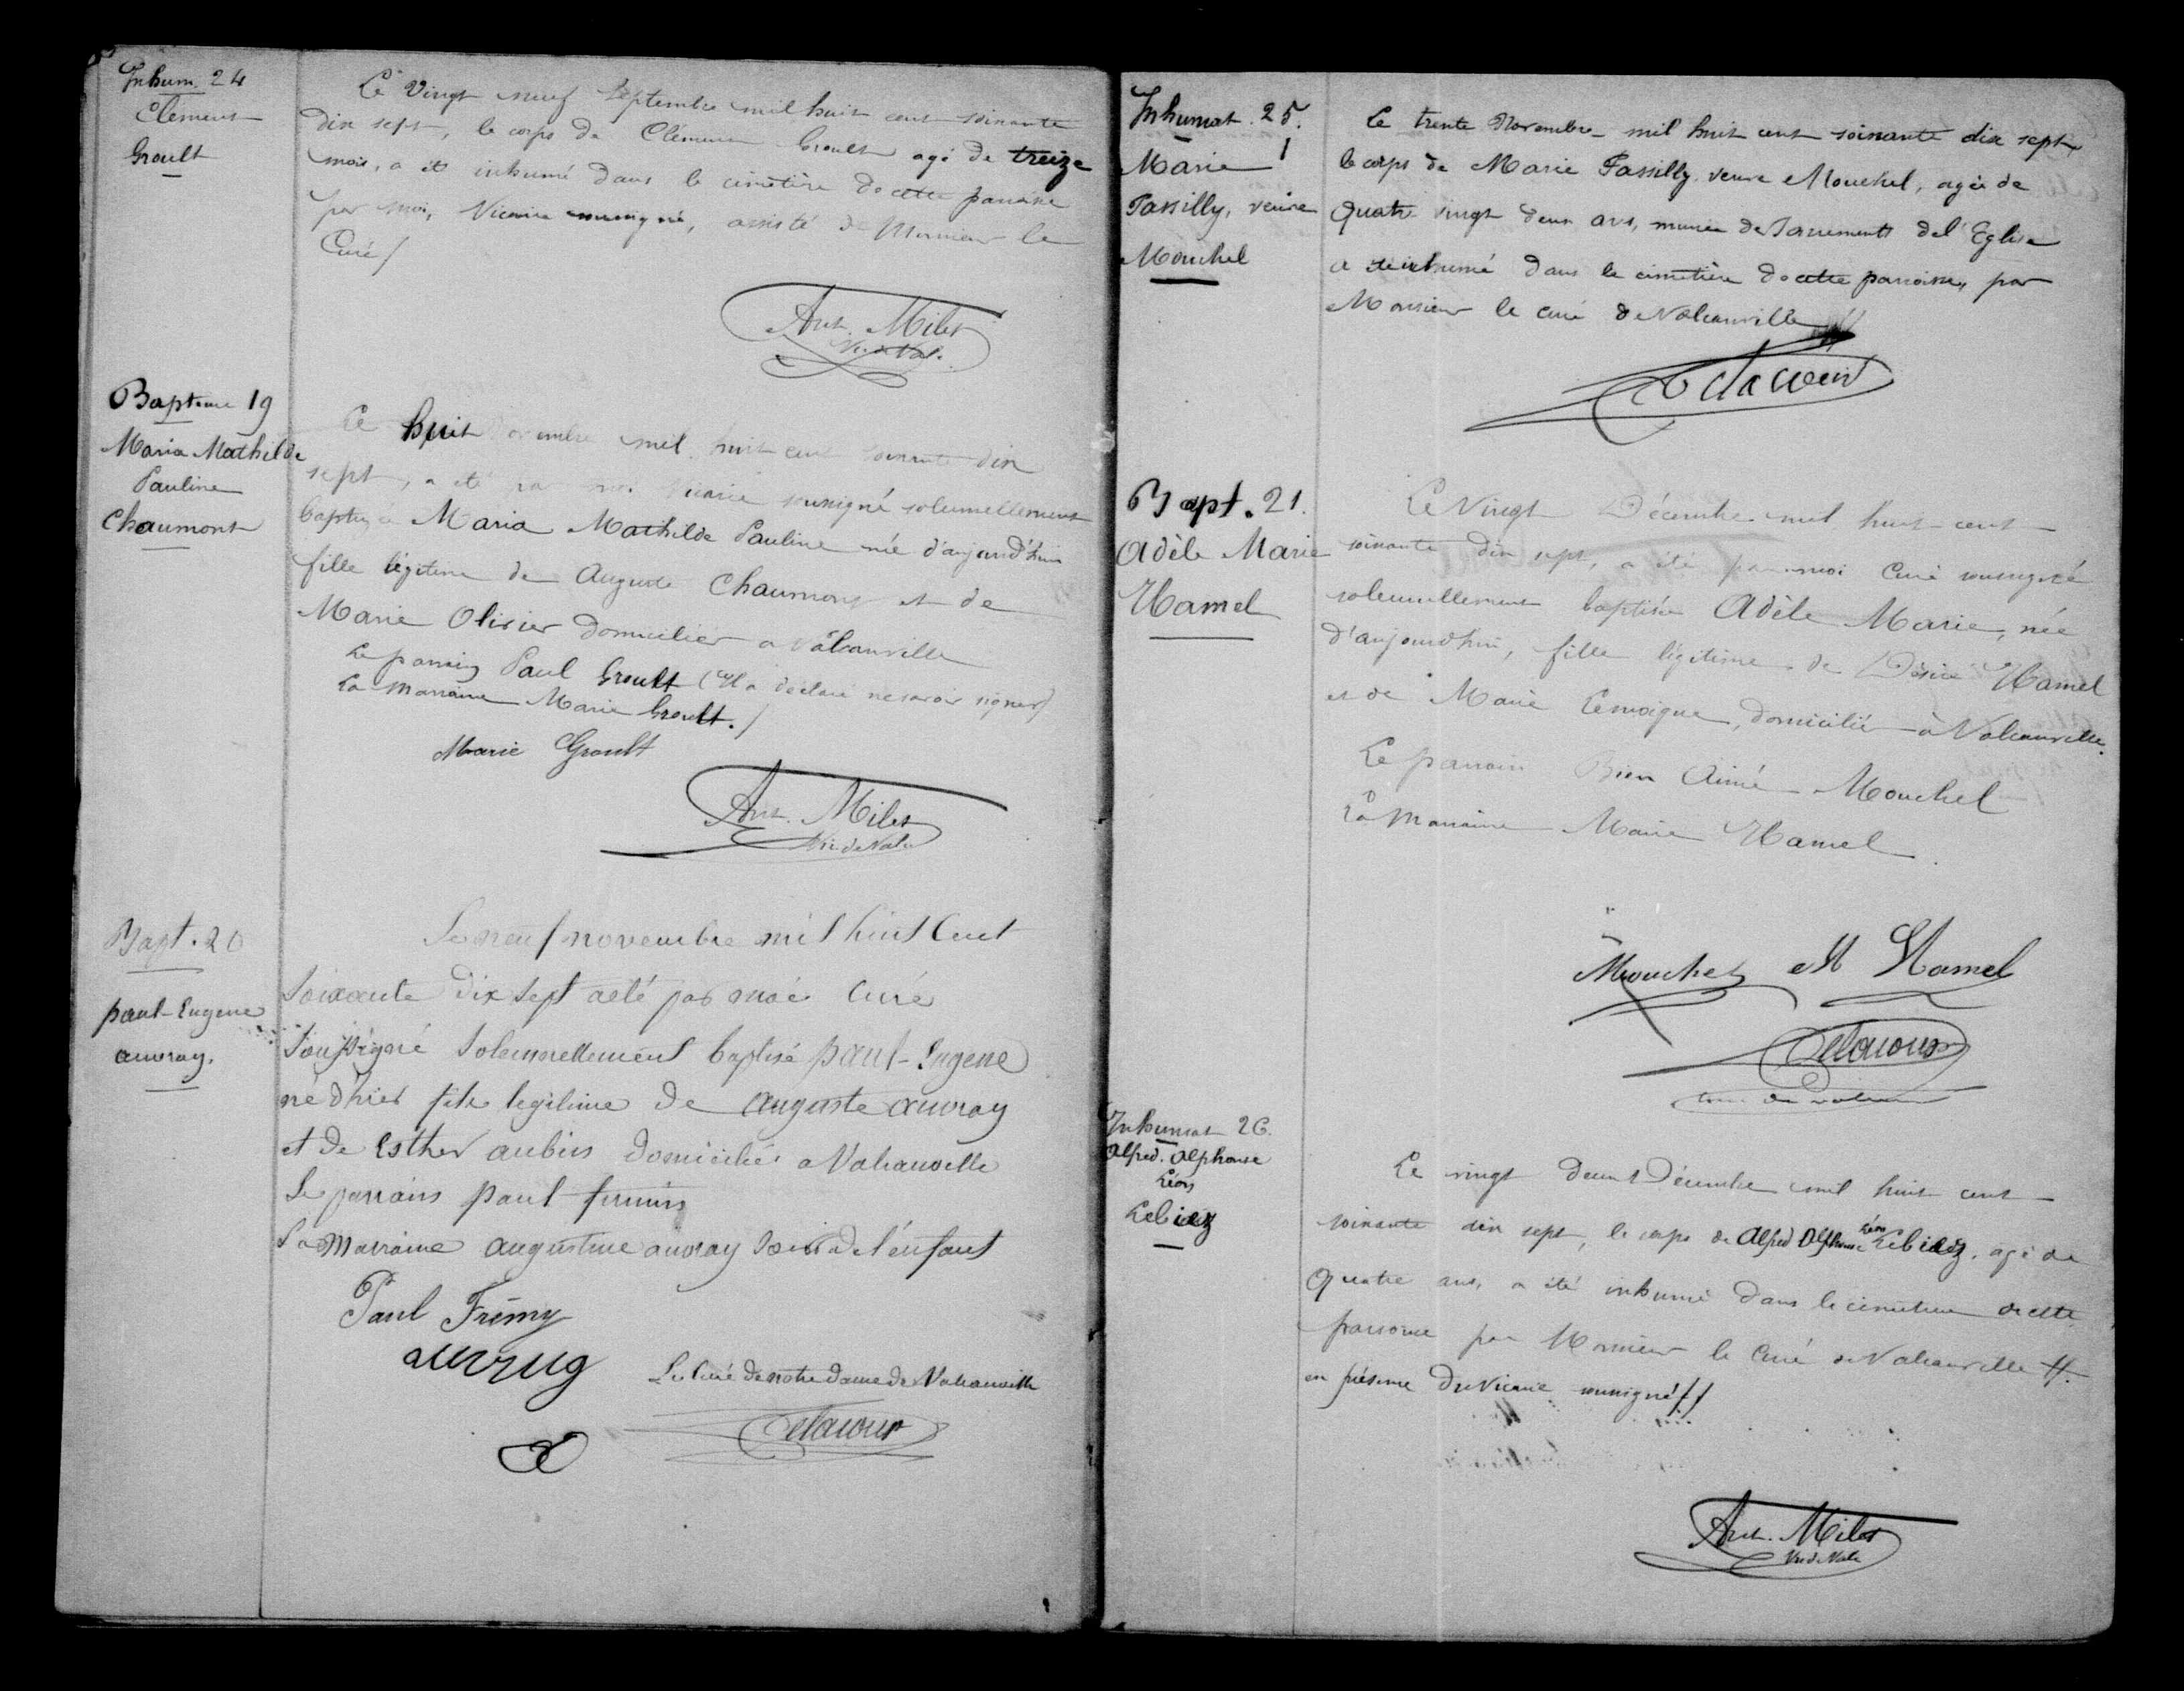 Inhum. 24
Clément
Groult
Le Vingt neuf Septembre mil huit cent soixante
dix sept, le corps de Clément Groult agé de treize
mois, a été inhumé dans le cimetière de cette paroisse
par moi, Vicaire soussigné, assisté de Monsieur le
Curé/
Ant. Milet
Vic de Val.
Bapteme 19
Maria Mathilde
Pauline
Chaumont
Le huit Novembre mil huit cent soixante dix
sept, a été par moi Vicaire soussigné solennellement
baptisée Maria Mathilde Pauline née d'aujourd'hui
fille légitime de Auguste Chaumont et de
Marie Olivier domiciliés a Valcanville
Le parrain Paul Groult (Il a déclaré ne savoir signer)
La marraine Marie Groult./
Marie Groult
Ant. Milet
Vic de Val
Bapt. 20
paul-Eugene
auvray.
Le neuf novembre mil huit Cent
Soixante dix Sept a été par moi Curé
Soussigné Solennellement baptisé paul-Eugene
né d'hier fils legitime de auguste auvray
et de Esther aubin domiciliés a Valcanville
Le parrain paul firmin
La Marraine augustine auvray Soeur de l'enfant
Paul Frémy
auvrug
Le Curé de notre dame de Valcanville
Delacour
Inhumat. 25.
Marie
Passilly, veuve
Mouchel
Le trente Novembre mil huit cent soixante dix sept,
le corps de Marie Passilly veuve Mouchel, agée de
quatre vingt deux ans, munie des Sacrements de l'Eglise
a été inhumé dans le cimetière de cette paroisse, par
Monsieur le curé de Valcanville
Delacour
Bapt. 21.
Adèle Marie
Hamel
Le Vingt Décembre mil huit cent
soixante dix sept, a été par moi Curé soussigné
solennellement baptisée Adèle Marie, née
d'aujourd'hui, fille légitime de Désiré Hamel
et de Marie Lemoigne, domiciliés à Valcanville.
Le parrain Bien Aimé Mouchel
La Marraine Marie Hamel.
Mouchel M Hamel
Delacour
Inhumat 26.
Alfred. Alphonse
Léon
Lebiez
Le vingt deux Décembre mil huit cent
soixante dix sept, le corps de Alfred Alphonse Léon Lebiez, agé de
quatre ans, a été inhumé dans le cimetière de cette
paroisse par Monsieur le Curé de Valcanville //.
en présence du Vicaire soussigné//
Ant. Milet
Vic de Val